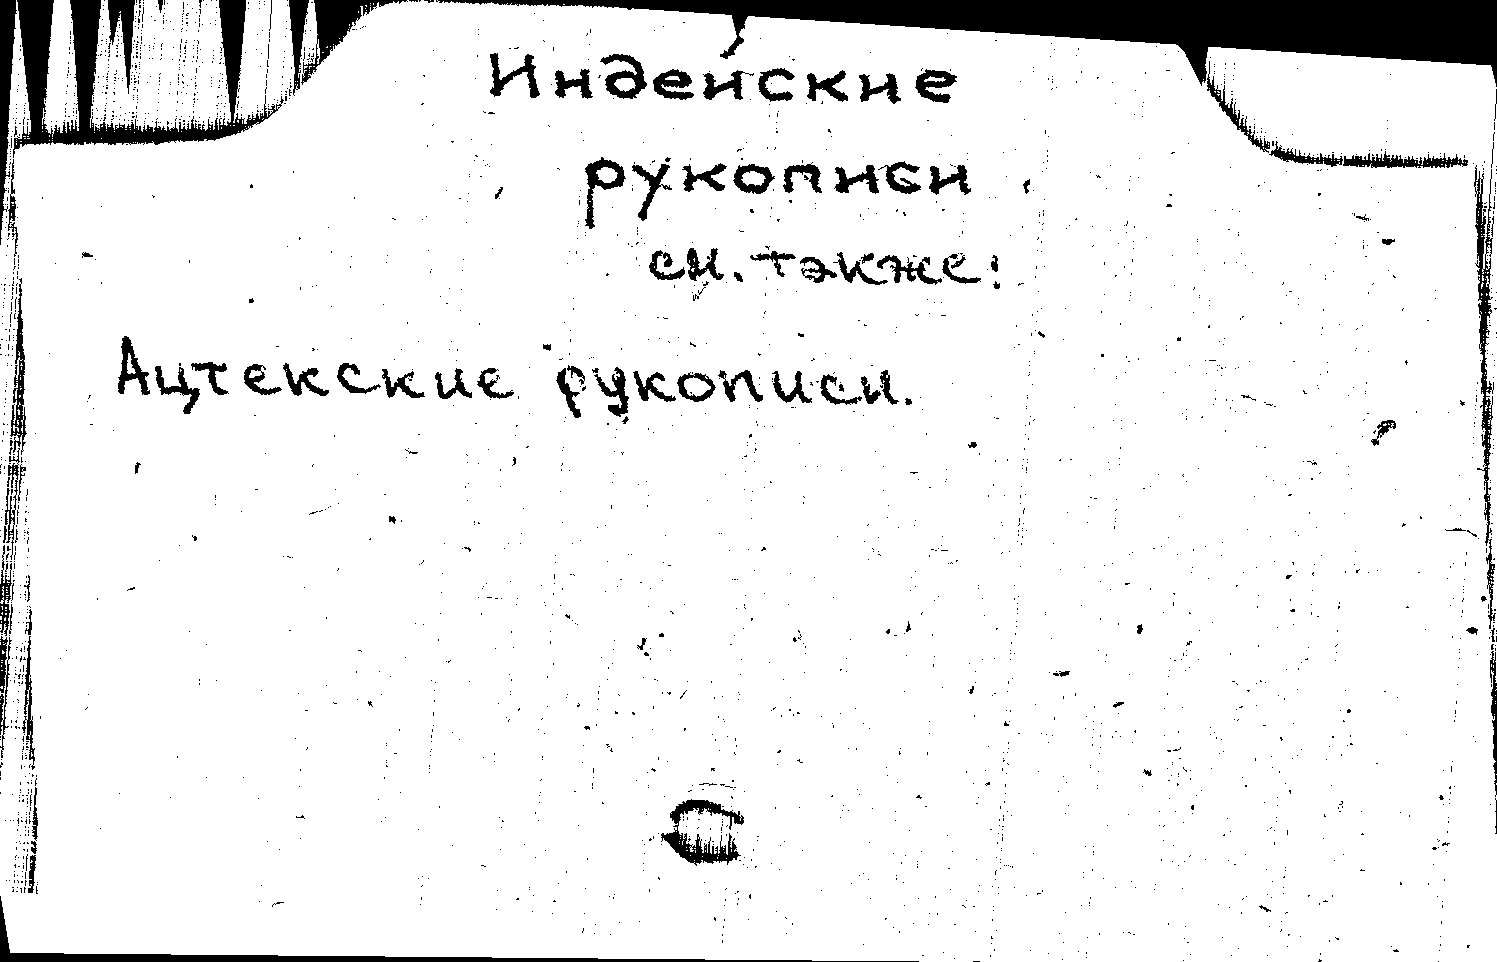 Индейские
рукописи
см. также:
Ацтекские рукописи.